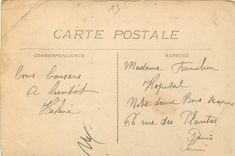 13
CARTE POSTALE
CORRESPONDANCE
ADRESSE
Bons baisers
A bientôt
Hélène
Madame
Hopital
Notre dame Bon Secours
66 rue des Plantes
Paris